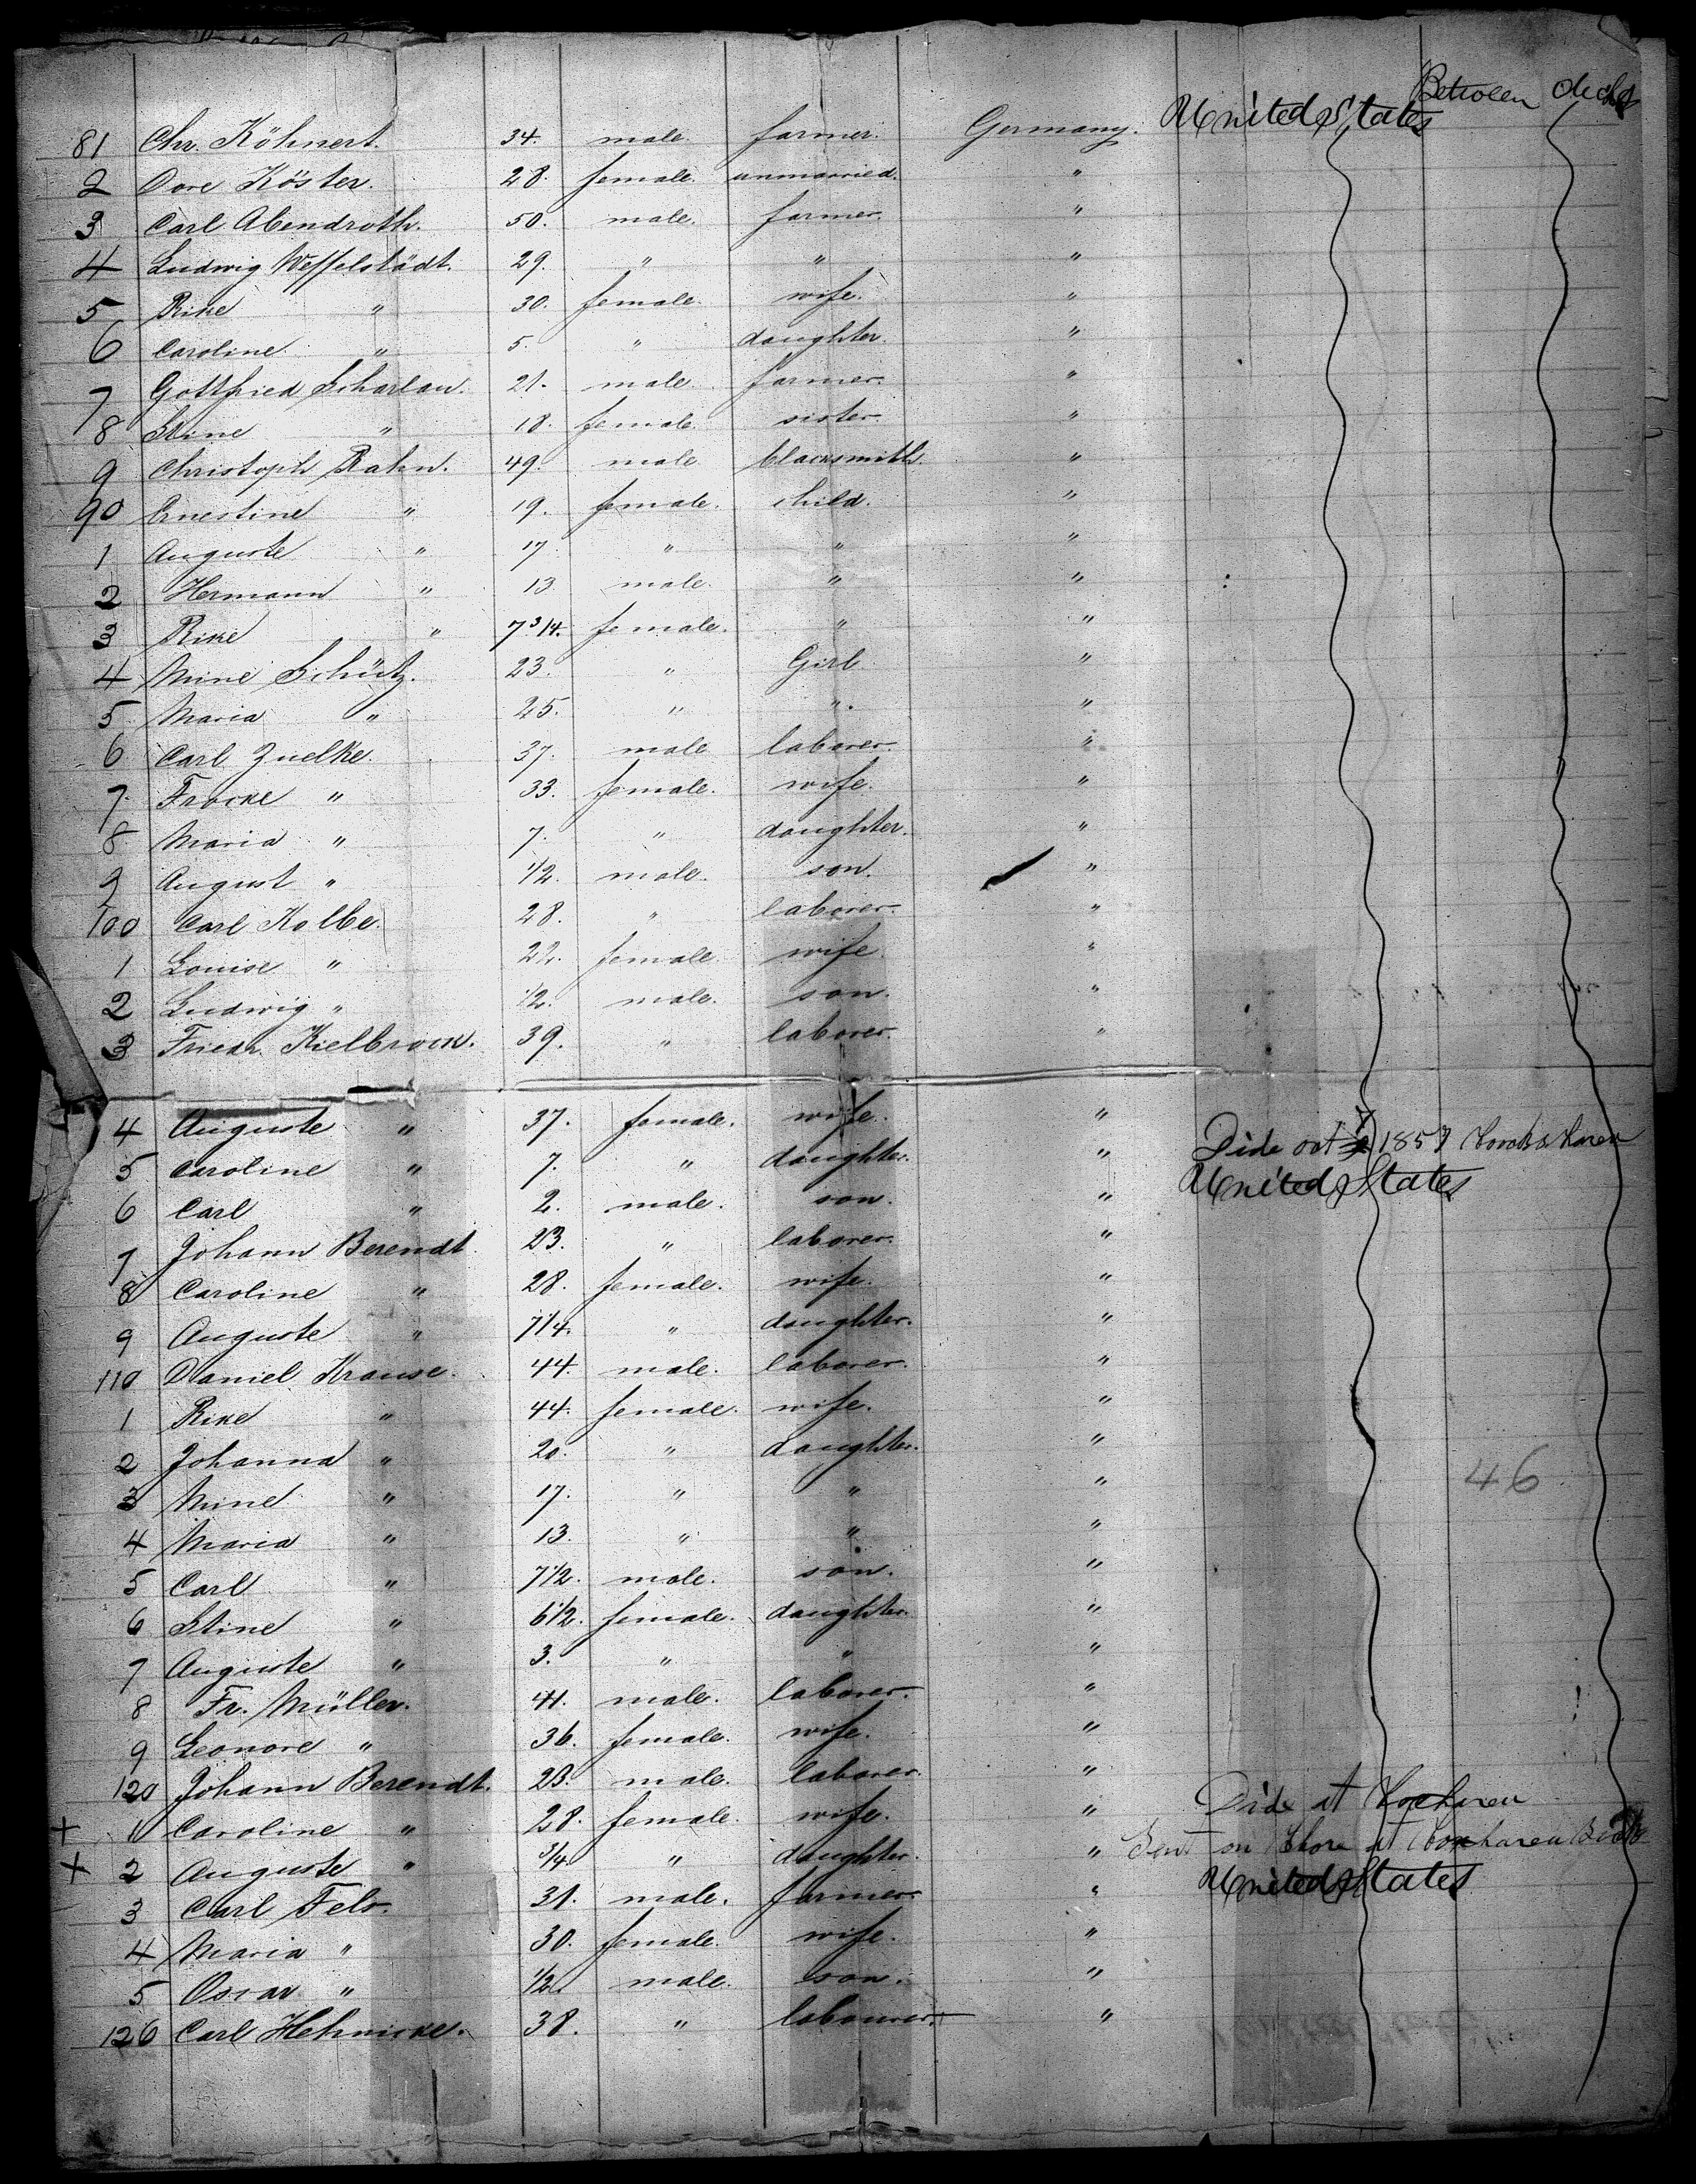 Between decks
81 Chr. Köhnert. 34. male. farmer. Germany. United States
2 Dore Köster. 28. female. unmarried. "
3 Carl Abendroth. 50. male. farmer. "
4 Ludwig Wesselstädt. 29. " " "
5 Rike " 30. female. wife. "
6 Caroline " 5. " daughter. "
7 Gottfried Scharlau. 21. male. farmer. "
8 Stine " 18. female. sister. "
9 Christoph Rahn. 49. male. blacksmith. "
90 Ernestine " 19. female. child. "
1 Auguste " 17 " " "
2 Hermann " 13 male. " "
3 Rike " 7 3/4. female. " "
4 Mine Schütz. 23. " Girl "
5 Maria " 25. " " "
6 Carl Zuelke. 37. male laborer. "
7 Frocke " 33. female. wife. "
8 Maria " 7. " daughter. "
9 August " 1/2. male. son. "
100 Carl Kolbe. 28. " laborer. "
1 Louise " 22. female. wife "
2 Ludwig " 1/2. male. son. "
3 Friedr. Kielbrock. 39. " laborer. "
4 Auguste " 37. female. wife. "
5 Caroline " 7. " daughter. " Dide oct 1857
6 Carl " 2. male. son. " United States
7 Johann Berendt 23. " laborer. "
8 Caroline " 28. female. wife. "
9 Auguste " 7 1/4. " daughter. "
110 Daniel Krause. 44. male. laborer. "
1 Rike " 44. female. wife. "
2 Johanna " 20. " daughter. "
3 Mine " 17. " " "
46
4 Maria " 13. " " "
5 Carl " 7 1/2. male. son. "
6 Stine " 6 1/2. female. daughter. "
7 Auguste " 3. " " "
8 Fr. Müller. 41. male. laborer. "
9 Leonore " 36. female. wife. "
120 Johann Berendt. 23. male. laborer. "
+ 1 Caroline " 28. female. wife. " Dide at Coxhaven
+ 2 Auguste " 3/4 " daughter. " Sent on Shore at Coxhaven Sick
3 Carl Fels. 31. male. farmer " United States
4 Maria " 30. female. wife. "
5 Oscar " 1/2. male. son. "
126 Carl Hehnicke. 38. " labourer. "